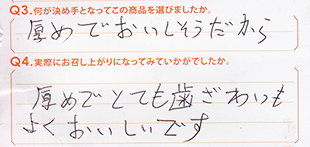 Q3.何が決め手となってこの商品を選びましたか。
厚めでおいしそうだから
Q4.実際にお召し上がりになってみていかがでしたか。
厚めでとても歯ざわいも
よくおいしいです